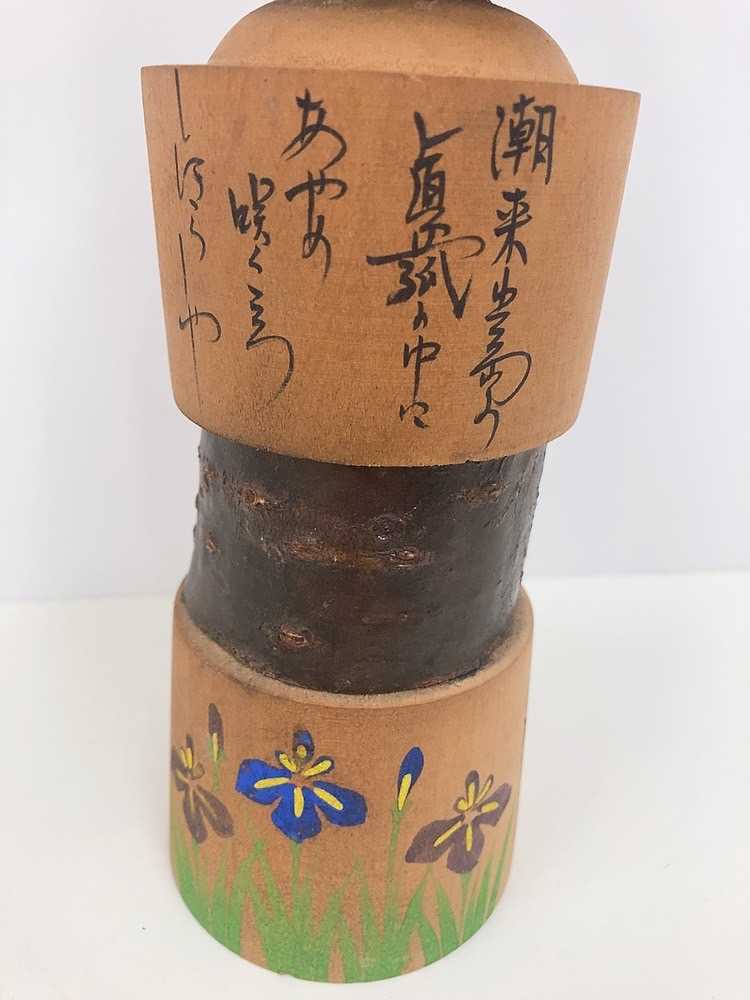 潮来出島の
真菰の中に
あやめ
咲くとは
しほらしや